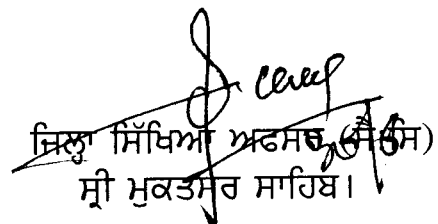 ਜ਼ਿਲ੍ਹਾ ਸਿੱਖਿਆ ਅਫਸਰ (ਸੈ.ਸਿ)
ਸ੍ਰੀ ਮੁਕਤਸਰ ਸਾਹਿਬ।